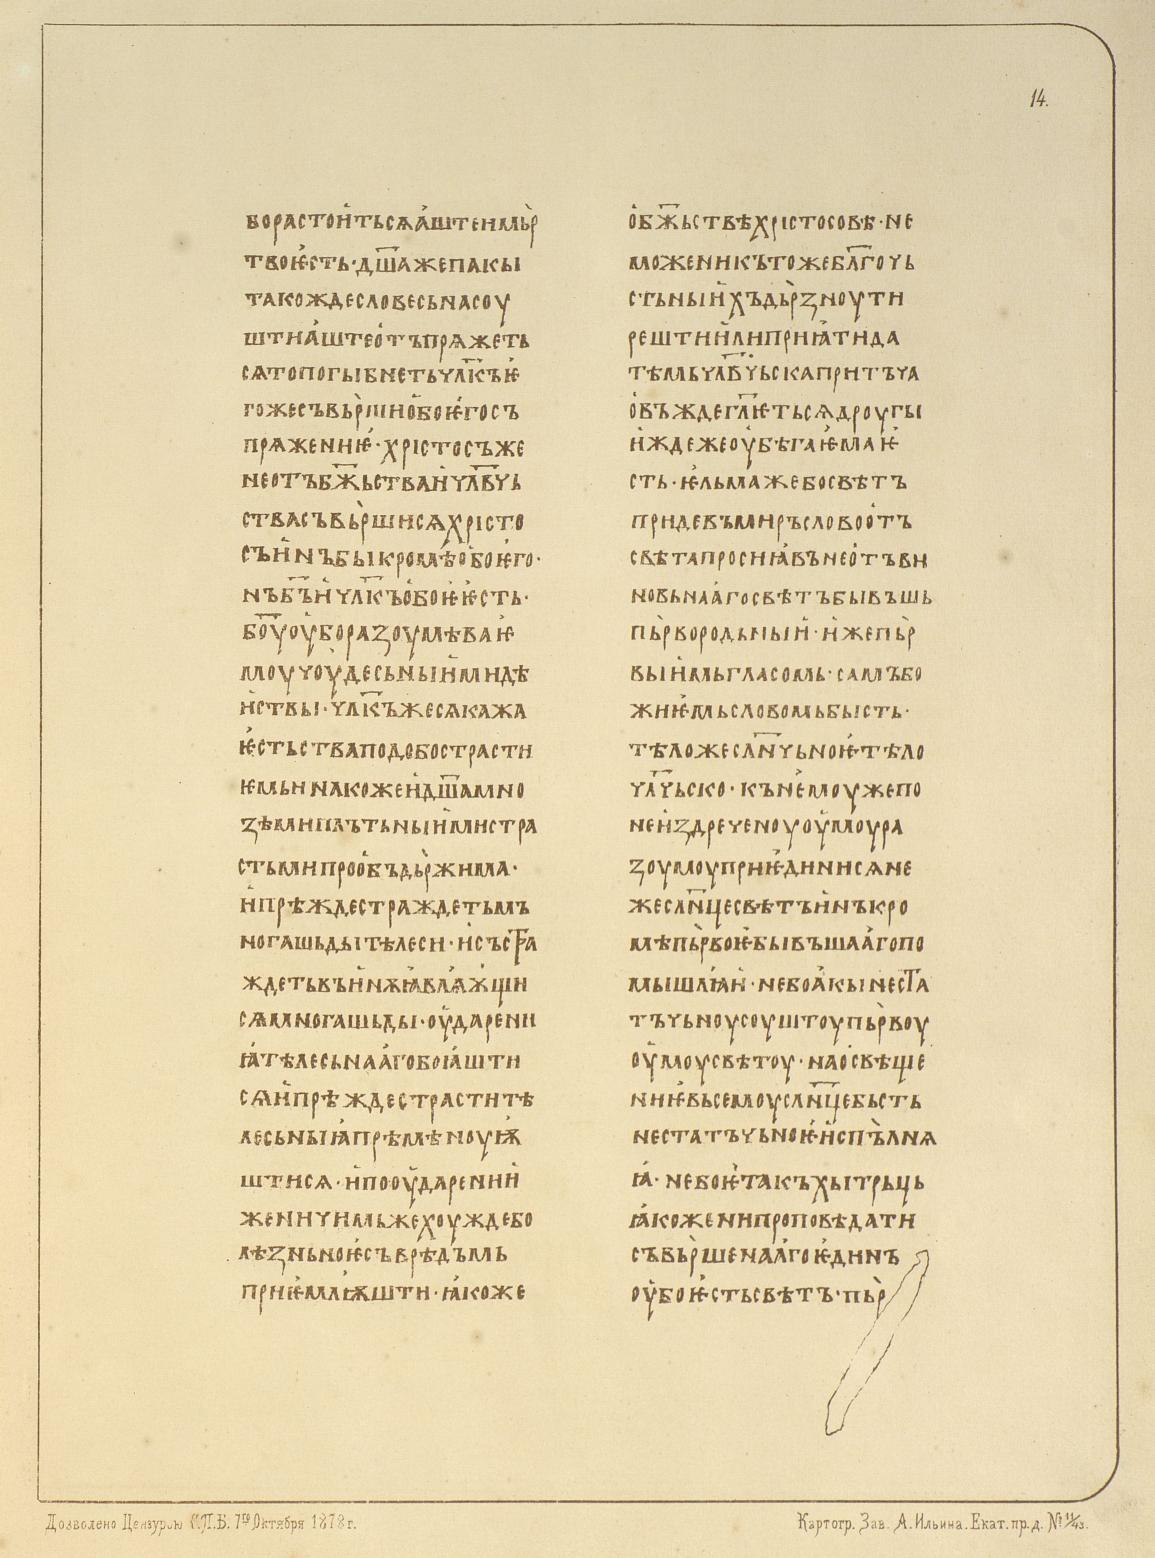 14.
борастоитьсѧаштенмьр
твоѥсть·дш҃ажепакы
такождесловесьнасоу
штиаштеотъпрѧжеть
сѧтопогыбнетьчл҃къѥ
гожесъвьршиобоѥгосъ
прѧжениѥ·христосъже
неотъбж҃ьстваичл҃вчь
ствасъвьршисѧхристо
съинъбыкромѣобоѥго·
нъб҃ъичл҃къобоѥѥсть·
боу҃оуборазоумѣваѥ
моучоудесьныимидѣ
иствы·чл҃къжесѧкажа
ѥстьстваподобострасти
ѥмьннакожеидш҃амно
ꙁѣмиплътьныимистра
стьмипрообьдьржима·
ипрѣждестраждетьмъ
ногашьдытѣлеси·исъстра
ждетьвъинѫꙗвлѧѫщи
сѧмногашьды·оударени
ꙗтѣлесьнаагобоꙗшти
сѧипрѣждестраститѣ
лесьныꙗпрѣмѣноуѭ
штисѧ·ипооударении
женичимьжехоуждебо
лѣꙁньноѥсъврѣдъмь
приѥмлѭшти·ꙗкоже
обж҃ьствѣхристосовѣ·не
моженикътожебл҃гочь
стьныихъдьрꙁноути
рештиилиприꙗтида
тѣмьчл҃вчьскапритъча
овъждегл҃ѥтьсѧдроугы
иждежеоубѣгаѥмаѥ
сть·ѥльмажебосвѣтъ
придевъмиръсловоотъ
свѣтапросиꙗвънеотъвн
новьнаагосвѣтъбывъшь
пьрвородьныи·ижепьр
выимьгласомь·самъбо
жиѥмьсловомьбысть·
тѣложеслн҃чьноѥтѣло
чл҃чьско·кънемоужепо
неиꙁдреченоуоумоура
ꙁоумоуприѥдинисѧне
жеслн҃цесвѣтъинъкро
мѣпьрвоѥбывъшаагопо
мышлꙗи·небоакынеста
тъчьноусоуштоупьрвоу
оумоусвѣтоу·наосвѣще
ниѥвьсемоуслн҃цебысть
нестатъчьноѥиспълнѧ
ꙗ·небоѥтакъхытрьць
ꙗкоженипроповѣдати
съвьршенаагоѥдинъ
оубоѥстьсвѣтъ·пьр
Дозволено Цензурою С.П.Б. 7го Октября 1878 г.
Картогр. Зав. А. Ильина. Екат. пр. д. №